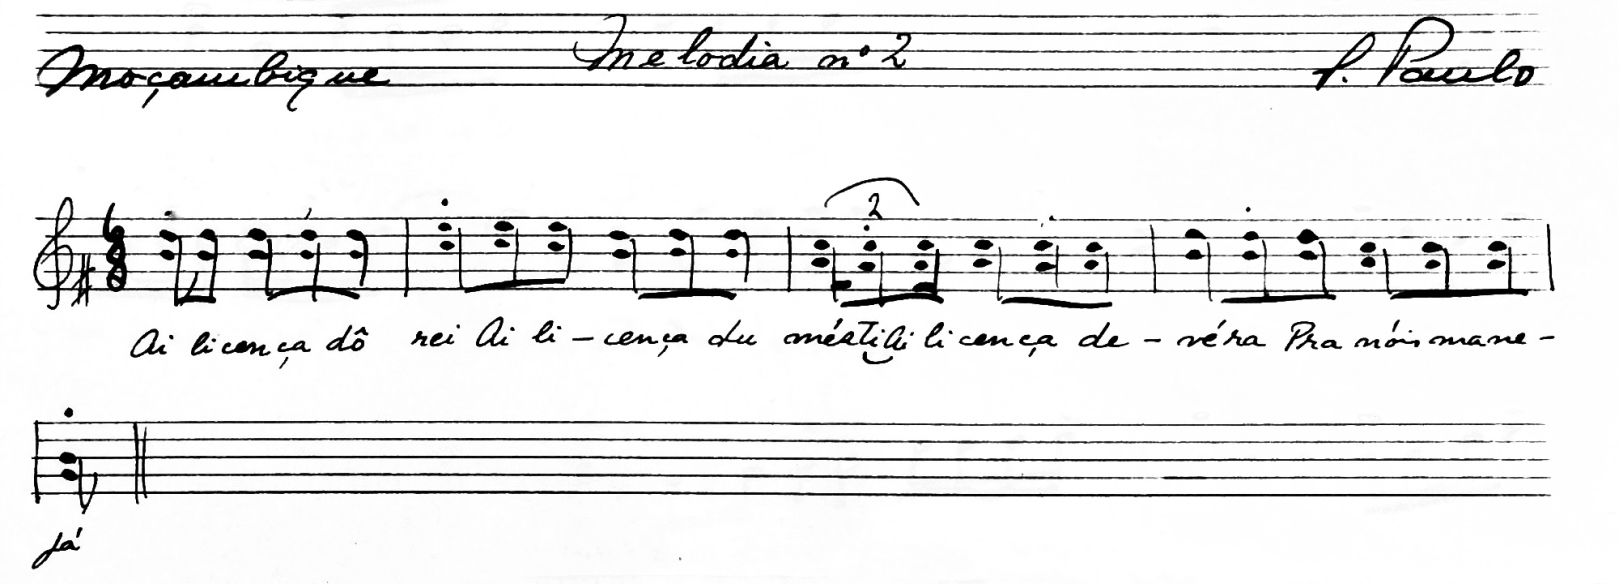 Moçambique Melodia nº 2 S. Paulo
6 8
2
Ai licença dô rei Ai li - cença du mésti Ai licença de - véra Pra nóis mane -
já